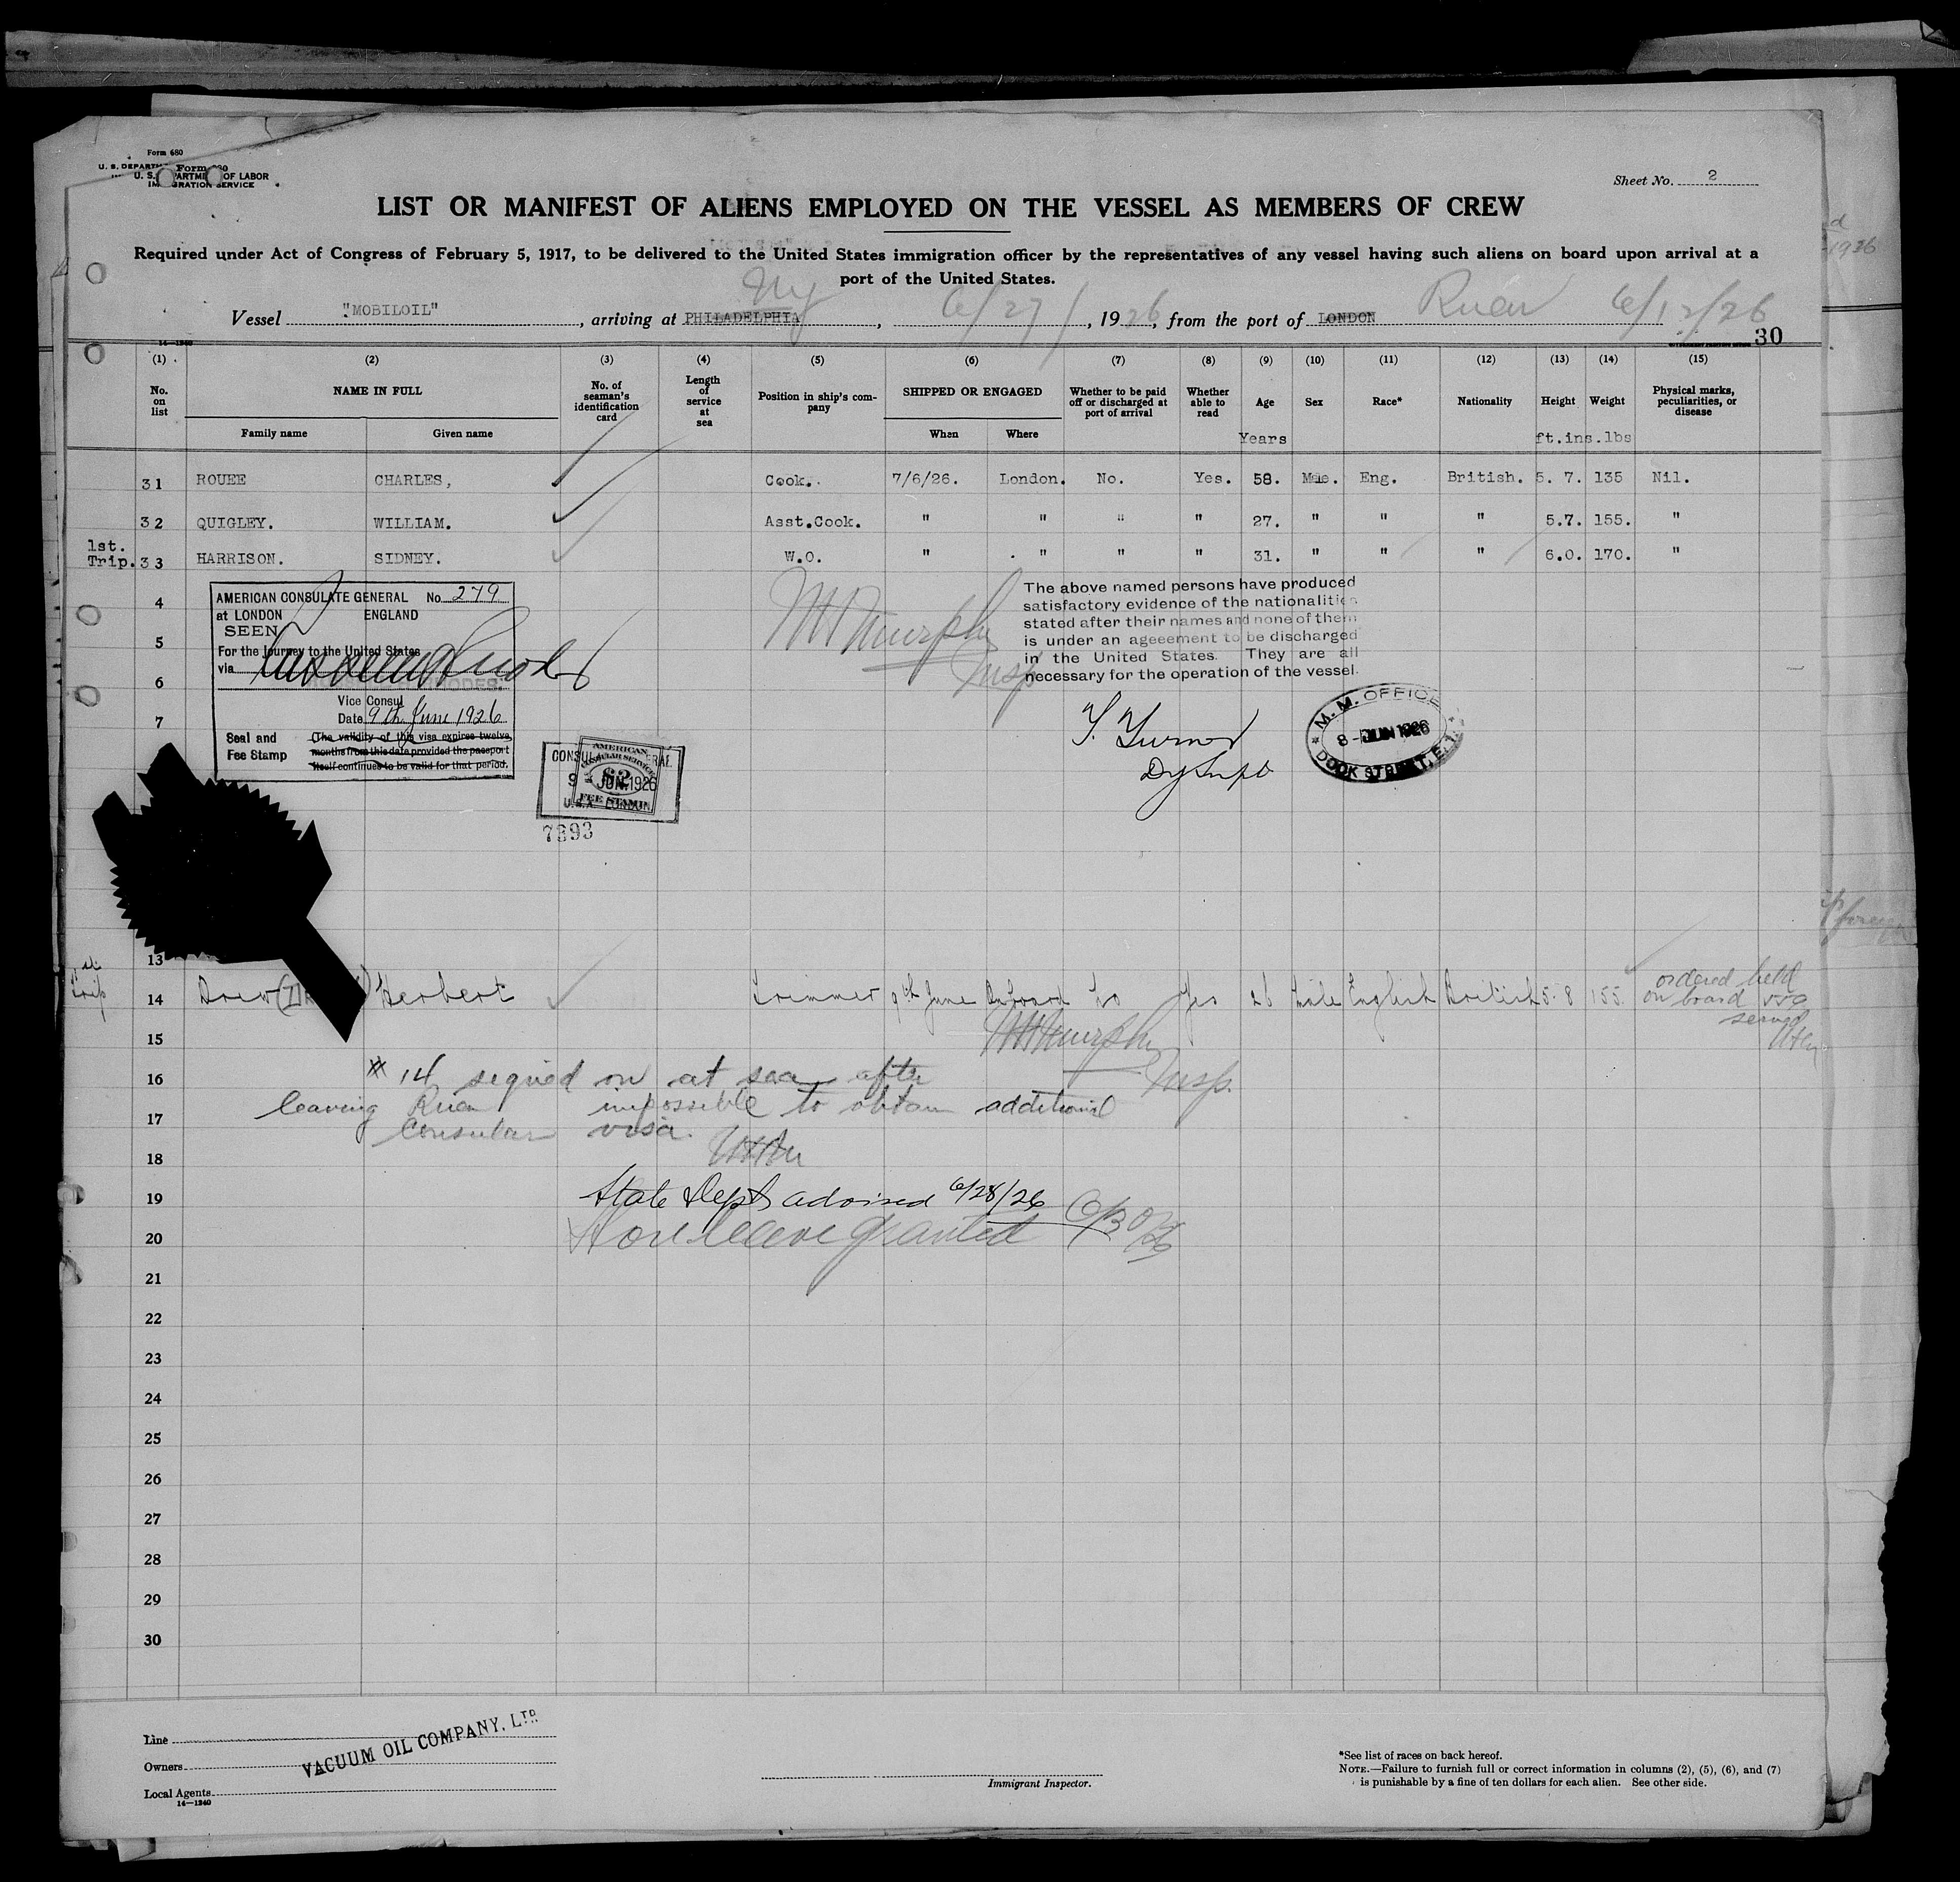 Form 680
U. S. DEPARTM
Form
U. S. PARTM OF LABOR
IMMIGRATION SERVICE
Sheet No. 2
LIST OR MANIFEST OF ALIENS EMPLOYED ON THE VESSEL AS MEMBERS OF CREW
Required under Act of Congress of February 5, 1917, to be delivered to the United States immigration officer by the representatives of any vessel having such aliens on board upon arrival at a
port of the United States.
Ny
Vessel "MOBILOIL", arriving at PHILADELPHIA, 6/27/, 1926, from the port of LONDON Ruen 6/12/26
30
(1) (2) (3) (4) (5) (6) (7) (8) (9) (10) (11) (12) (13) (14) (15)
No. on list NAME IN FULL No. of seaman's identification card Length of service at sea Position in ship's company SHIPPED OR ENGAGED Whether to be paid off or discharged at port of arrival Whether able to read Age Sex Race* Nationality Height Weight Physical marks, peculiarities, or disease
Family name Given name When Where Years ft.ins.lbs
31 ROUEE CHARLES, Cook. 7/6/26. London. No. Yes. 58. Eng. British. 5. 7. 135 Nil.
32 QUIGLEY. WILLIAM. Asst.Cook. " " " " 27. " " " 5.7. 155. "
1st. Trip. 33 HARRISON. SIDNEY. W.O. " " " " 31. " " " 6.0. 170. "
AMERICAN CONSULATE GENERAL No. 279
at LONDON ENGLAND
SEEN
For the journey to the United States
via
Vice Consul
Date 9th June 1926
Seal and Fee Stamp
(The validity of this visa expires twelve
months from this date provided the passport
itself continues to be valid for that period.
AMERICAN
CONSULAR SERVICE
$2
9 JUN.1926
FEE STAMP
U.S.A. LONDON
7393
WH Murphy
Insp
The above named persons have produced
satisfactory evidence of the nationalities
stated after their names and none of them
is under an ageeement to be discharged
in the United States. They are all
necessary for the operation of the vessel.
T. Turner
Dy Supt
M. M. OFFICE
8 - JUN 1926
DOCK STREET, E.1.
4
5
6
7
13
Trip 14 Drew Herbert Trimmer 9th June On board No Yes 26 Male English British 5-8 155 ordered held
on board 559
served
15
WH Murphy
Insp.
16 # 14 signed on at sea after
leaving Ruen impossible to obtain additional
17 Consular visa.
18
19 State Dept advised 6/28/26
20 Shore leave granted 6/30/26
21
22
23
24
25
26
27
28
29
30
Line
Owners
VACUUM OIL COMPANY, LTD
Local Agents
14—1240
Immigrant Inspector.
*See list of races on back hereof.
NOTE.—Failure to furnish full or correct information in columns (2), (5), (6), and (7)
is punishable by a fine of ten dollars for each alien. See other side.